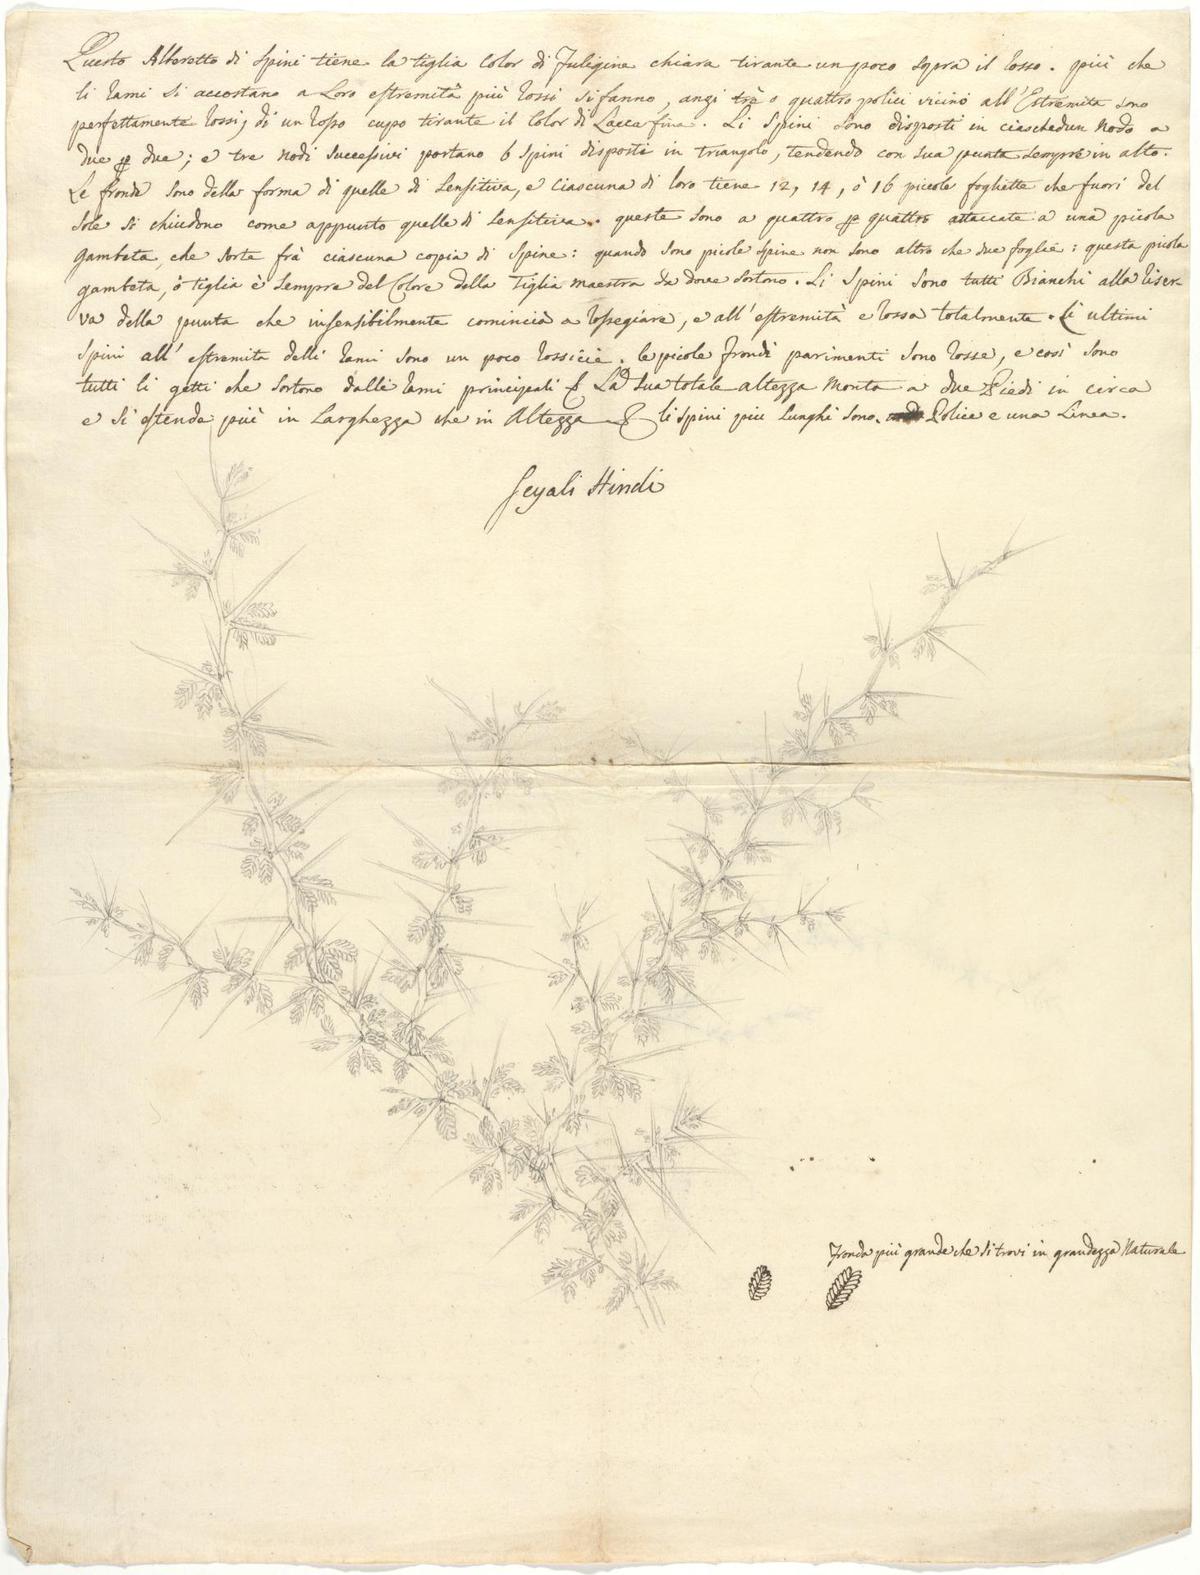 Questo Alberetto di Spini tiene la tiglia Color di Fuligine chiara tirante un poco sopra il rosso. più che
li rami si accostano a Loro estremità più rossi si fanno, anzi trè o quattro polici vicino all'Estremita sono
perfettamente rossi, di un rosso cupo tirante il Color di Lacca fina. Li Spini sono disposti in ciaschedun Nodo a
due p due; e tre nodi successivi portano 6 Spini disposti in triangolo, tendendo con sua punta sempre in alto.
Le fronde sono della forma di quelle di Sensitiva, e ciascuna di loro tiene 12, 14, ò 16 picole fogliette che fuori del
sole si chiudono come appunto quelle di Sensitiva. queste sono a quattro p quattro attaccate a una picola
gambeta, che sorte frà ciascuna copia di Spine: quando sono picole Spine non sono altro che due foglie: questa picola
gambeta, ò tiglia è sempre del Colore della Tiglia maestra da dove sortono. Li Spini sono tutti Bianchi alla riser-
va della punta che insensibilmente comincia a rossegiare, e all'estremità e rossa totalmente. Li ultimi
Spini all'estremita delli rami sono un poco rossicie. le picole frondi parimenti sono rosse, e così sono
tutti li getti che sortono dalli rami principali & La sua totale altezza monta a due Piedi in circa
e si estende più in Larghezza che in Altezza & li Spini piu lunghi sono Police e una Linea.
Seyali Hindi
Fronda più grande che si trovi in grandezza Naturale